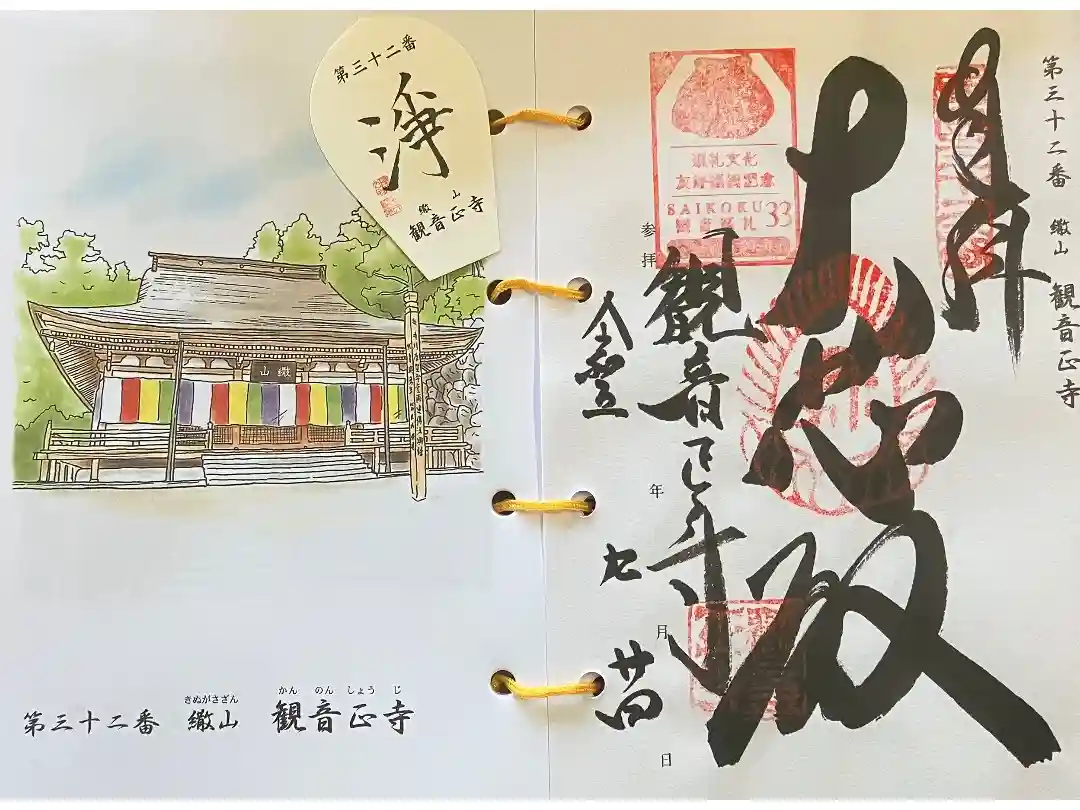 第三十二番 繖山 観音正寺
奉拝
大悲殿
巡礼文化
SAIKOKU 33
観音巡礼
観音正寺
参拝 年 七月 日
第三十二番
淨
繖山
観音正寺
山繖
きぬがさざん かんのんしょうじ
第三十二番 繖山 観音正寺